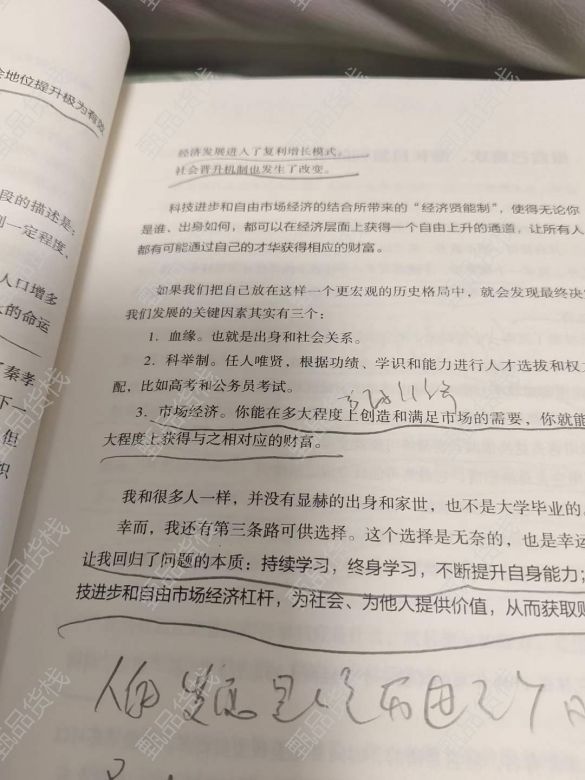 会地位提升极为有效
段的描述是：
到一定程度，
人口增多
的命运
秦孝
下一
但
识
经济发展进入了复利增长模式，
社会晋升机制也发生了改变。
科技进步和自由市场经济的结合所带来的“经济贤能制”，使得无论你
是谁、出身如何，都可以在经济层面上获得一个自由上升的通道，让所有人
都有可能通过自己的才华获得相应的财富。
如果我们把自己放在这样一个更宏观的历史格局中，就会发现最终决
我们发展的关键因素其实有三个：
1. 血缘。也就是出身和社会关系。
2. 科举制。任人唯贤，根据功绩、学识和能力进行人才选拔和权
配，比如高考和公务员考试。
3. 市场经济。你能在多大程度上创造和满足市场的需要，你就能
大程度上获得与之相对应的财富。
我和很多人一样，并没有显赫的出身和家世，也不是大学毕业的。
幸而，我还有第三条路可供选择。这个选择是无奈的，也是幸运
让我回归了问题的本质：持续学习，终身学习，不断提升自身能力；
技进步和自由市场经济杠杆，为社会、为他人提供价值，从而获取财
甄品货栈